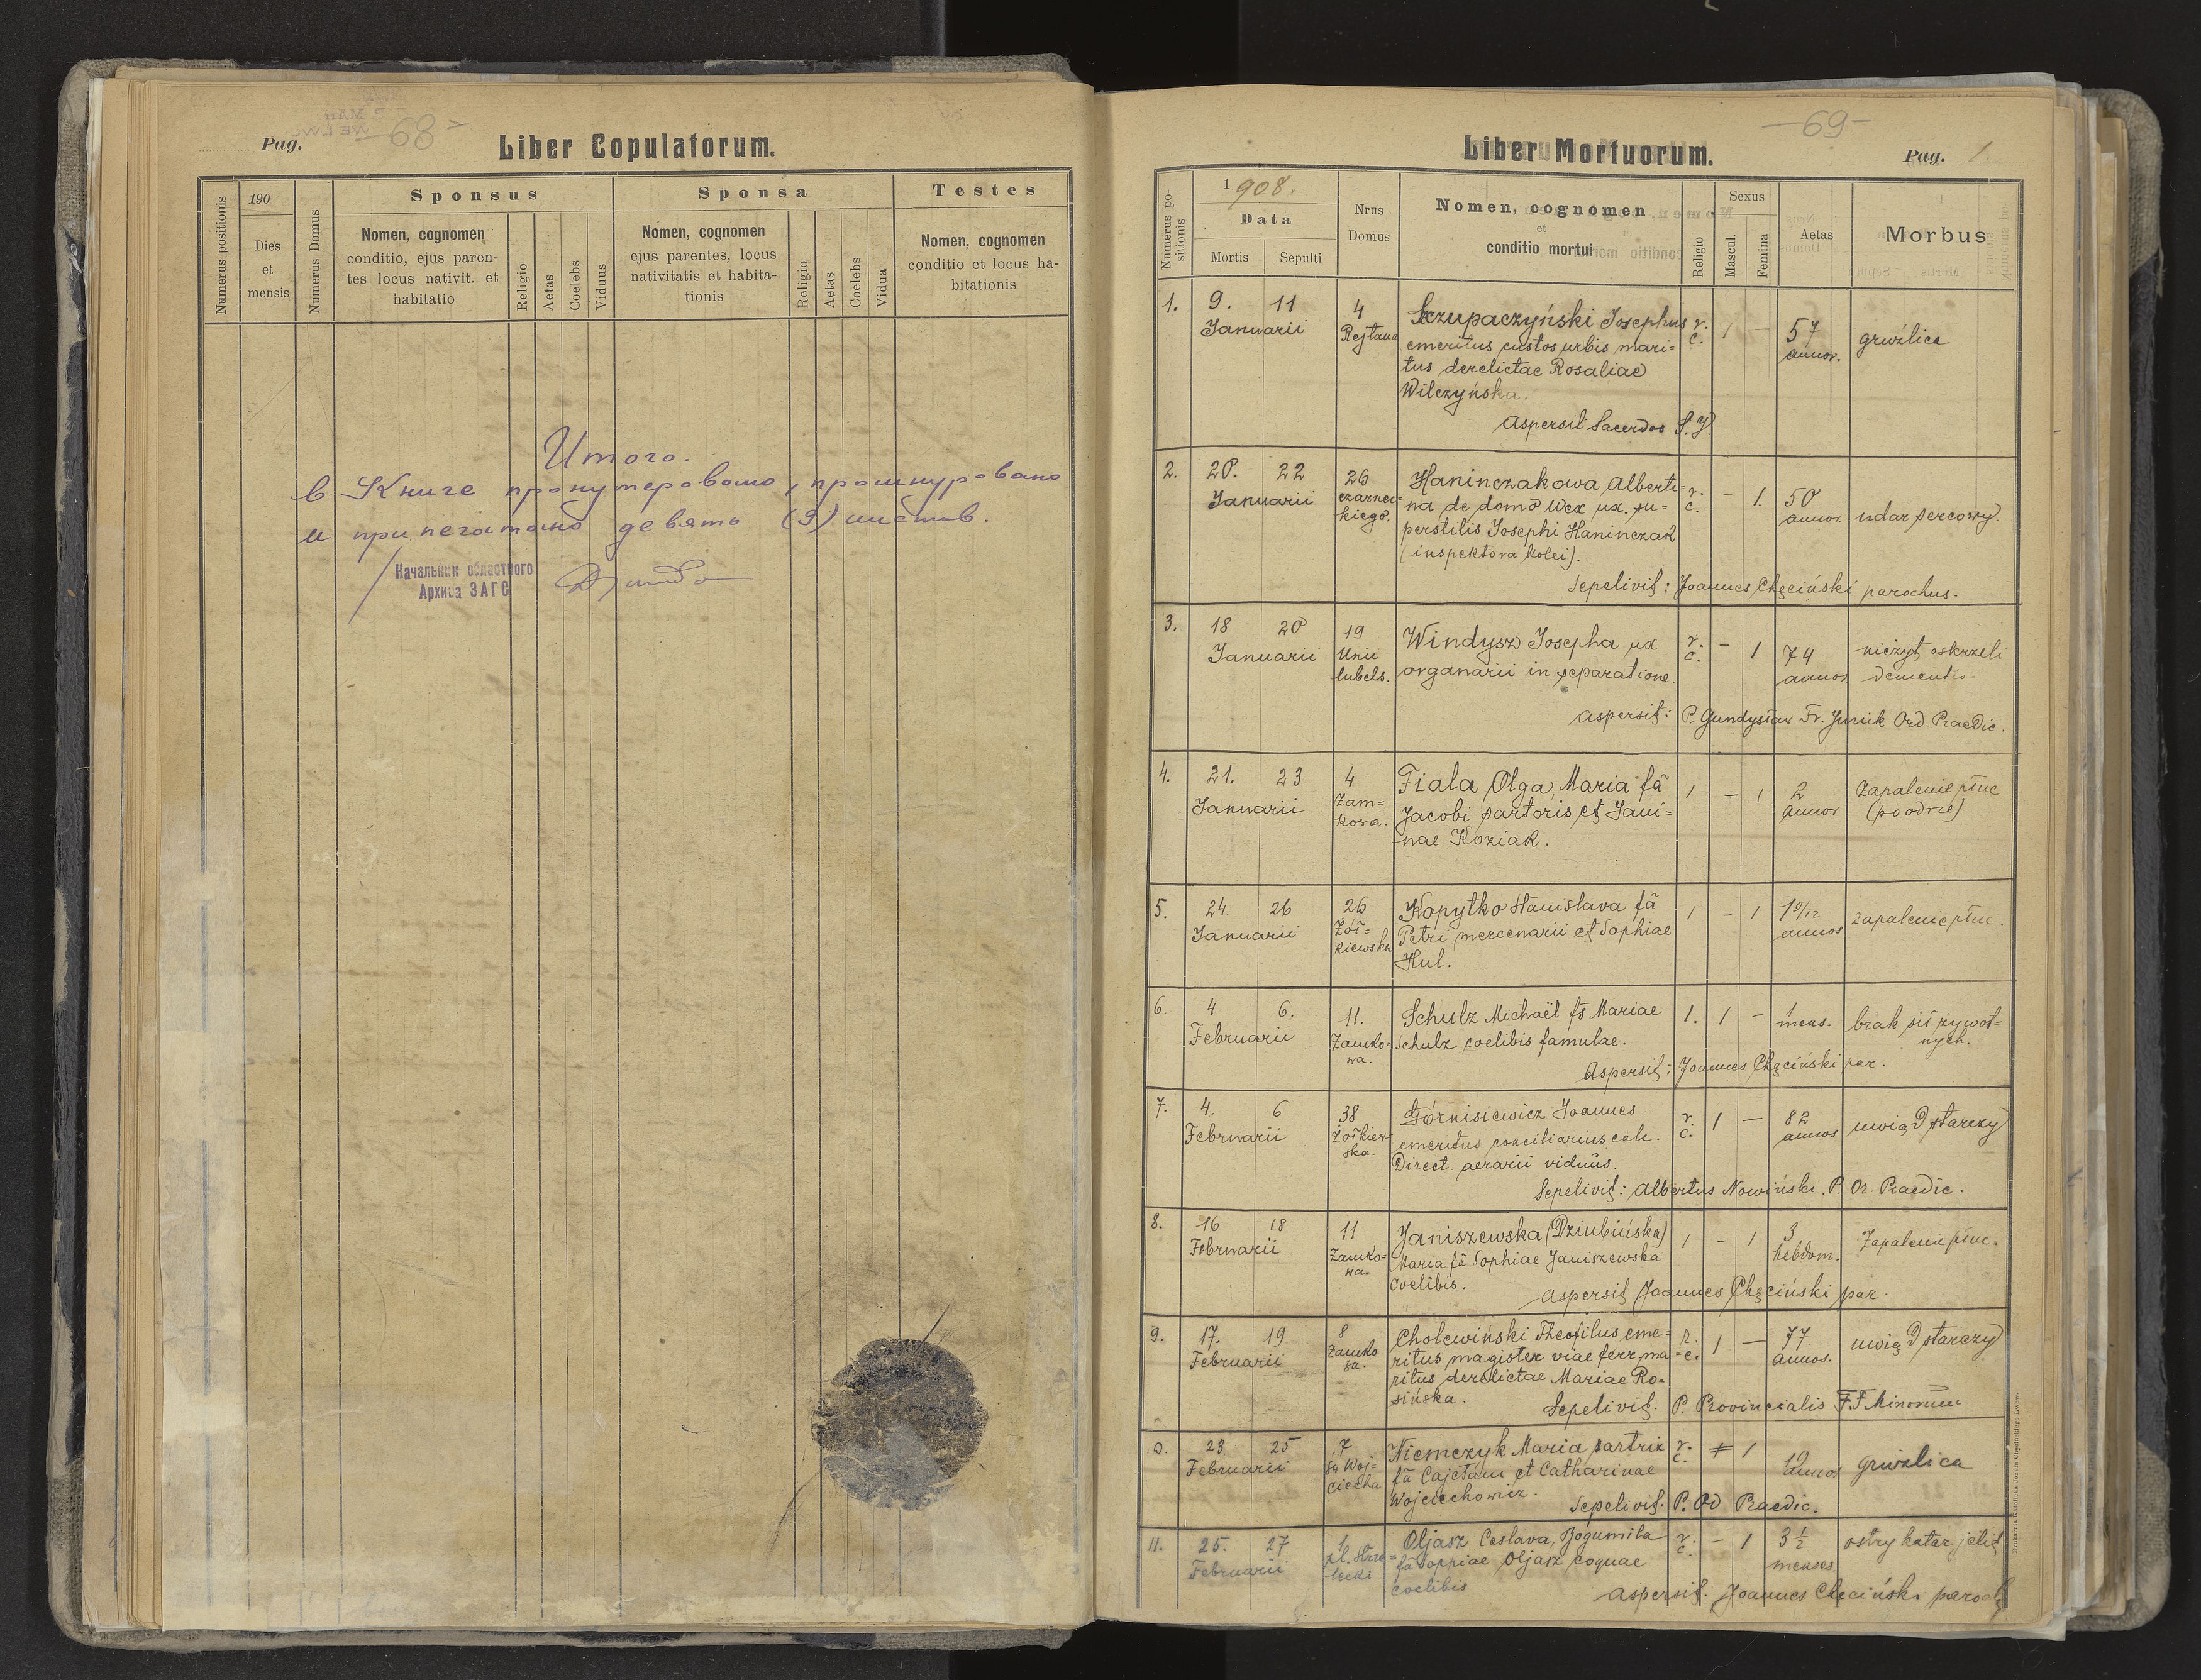 Pag.
68
Liber Copulatorum.
Numerus positionis
190
Dies
et
mensis
Numerus Domus
Sponsus
Nomen, cognomen
conditio, ejus paren-
tes locus nativit. et
habitatio
Religio
Aetas
Coelebs
Viduus
Sponsa
Nomen, cognomen
ejus parentes, locus
nativitatis et habita-
tionis
Religio
Aetas
Coelebs
Vidua
Testes
Nomen, cognomen
conditio et locus ha-
bitationis
Итого.
в Книге пронумеровано, прошнуровано
и припечатано девять (9) листов.
Начальник областного
Архива ЗАГС
-69-
Liber Mortuorum.
Pag. 1
Numerus po-
sitionis
1908.
Data
Mortis Sepulti
Nrus
Domus
Nomen, cognomen
et
conditio mortui
Religio
Sexus
Mascul.
Femina
Aetas
Morbus
1. 9. 11 4 Szczupaczyński Josephus r. 1 – 57 gruźlica
Januarii Rejtana emeritus custos urbis mari= c. annor.
tus derelictae Rosaliae
Wilczyńska.
Aspersit Sacerdos S. J.
2. 20. 22 26 Haninczakowa Alberti= r. – 1. 50
Januarii czarnec= na de domo Wex ux. su= c. annor. udar sercowy.
kiego. perstitis Josephi Haninczak
(inspektora kolei).
Sepelivit: Joannes Chęciński parochus.
3. 18 20 19 Windysz Josepha ux r. – 1 74 nieżyt oskrzeli
Januarii Unii organarii in separatione. c. annos dementia.
lubels.
Aspersit: P. Gundysław Fr. Ord. Praedic.
4. 21. 23 4 Fiala Olga Maria fa 1 – 1 2 Zapalenie płuc
Januarii Zam= Jacobi sartoris et Jani= annor (po odrze)
kowa. nae Koziak.
5. 24. 26 26 Kopytko Stanislava fa 1 – 1 1 0/12 zapalenie płuc.
Januarii Żół= Petri mercenarii et Sophiae annos
kiewska Hul.
6. 4 6. 11. Schulz Michaël fs Mariae 1. 1 – 1 mens. brak sił żywot=
Februarii Zamko= Schulz coelibis famulae. nych.
wa.
Aspersit: Joannes Chęciński par.
7. 4. 6 38 Górnisiewicz Joannes r. 1 – 82 uwiąd starczy
Februarii Żółkiew emeritus conciliarius calc. c. annos
ska. Direct. aerarii viduus.
Sepelivit: Albertus Nowiński P. Or. Praedic.
8. 16 18 11 Janiszewska (Dziubińska) 1 – 1 3 Zapalenie płuc.
Februarii Zamko= Maria fa Sophiae Janiszewska hebdom.
wa. coelibis.
Aspersit Joannes Chęciński par.
9. 17. 19 8 Cholewiński Theofilus eme= r. 1 – 77 uwiąd starczy
Februarii Zamko ritus magister viae ferr. ma= c. annos.
wa. ritus derelictae Mariae Ro=
sińska.
Sepelivit. P. Provincialis F.F. Minorum
0. 23 25 7 Niemczyk Maria sartrix r. 1 19 gruźlica
Februarii św Woj= fa Cajetani et Catharinae c. annos
ciecha Wojciechowicz.
Sepelivit. P. Od Praedic.
11. 25. 27 1 Oljasz Ceslava, Bogumiła r. – 1 3 1/2 ostry katar jelit
Februarii pl. Strze= fa Sophiae Oljasz coquae c. menses
lecki coelibis
Aspersit. Joannes Chęciński paroch